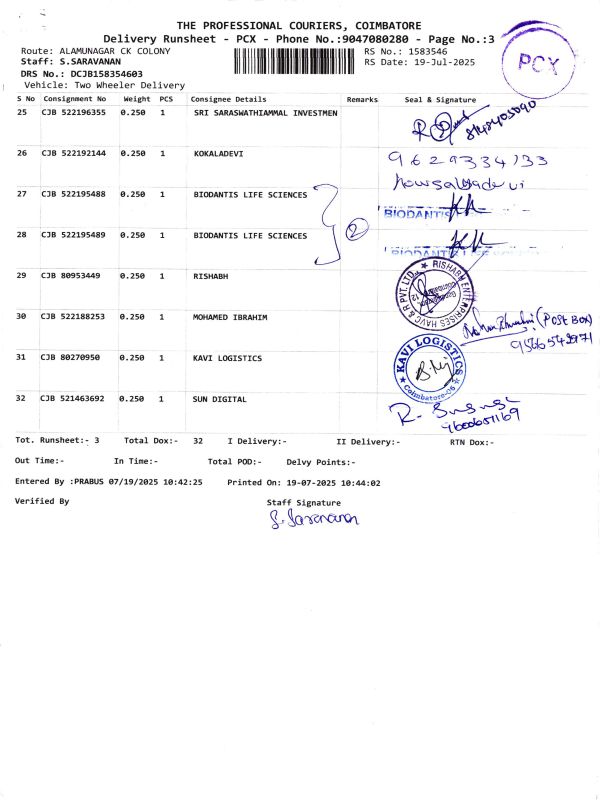 THE PROFESSIONAL COURIERS, COIMBATORE
Delivery Runsheet - PCX - Phone No.:9047080280 - Page No.:3
Route: ALAMUNAGAR CK COLONY
RS No.: 1583546
Staff: S.SARAVANAN
RS Date: 19-Jul-2025
DRS No.: DCJB158354603
Vehicle: Two Wheeler Delivery
PCX
S No Consignment No Weight PCS Consignee Details Remarks Seal & Signature
25 CJB 522196355 0.250 1 SRI SARASWATHIAMMAL INVESTMEN
26 CJB 522192144 0.250 1 KOKALADEVI 9629334133
27 CJB 522195488 0.250 1 BIODANTIS LIFE SCIENCES BIODANTIS
2
28 CJB 522195489 0.250 1 BIODANTIS LIFE SCIENCES BIODANTIS
29 CJB 80953449 0.250 1 RISHABH RISHABH ENTERPRISES HAVC & R PVT. LTD.
30 CJB 522188253 0.250 1 MOHAMED IBRAHIM (POST BOX)
31 CJB 80270950 0.250 1 KAVI LOGISTICS KAVI LOGISTICS Coimbatore-06
32 CJB 521463692 0.250 1 SUN DIGITAL
Tot. Runsheet:- 3 Total Dox:- 32 I Delivery:- II Delivery:- RTN Dox:-
Out Time:- In Time:- Total POD:- Delvy Points:-
Entered By :PRABUS 07/19/2025 10:42:25 Printed On: 19-07-2025 10:44:02
Verified By Staff Signature
S. Saravanan